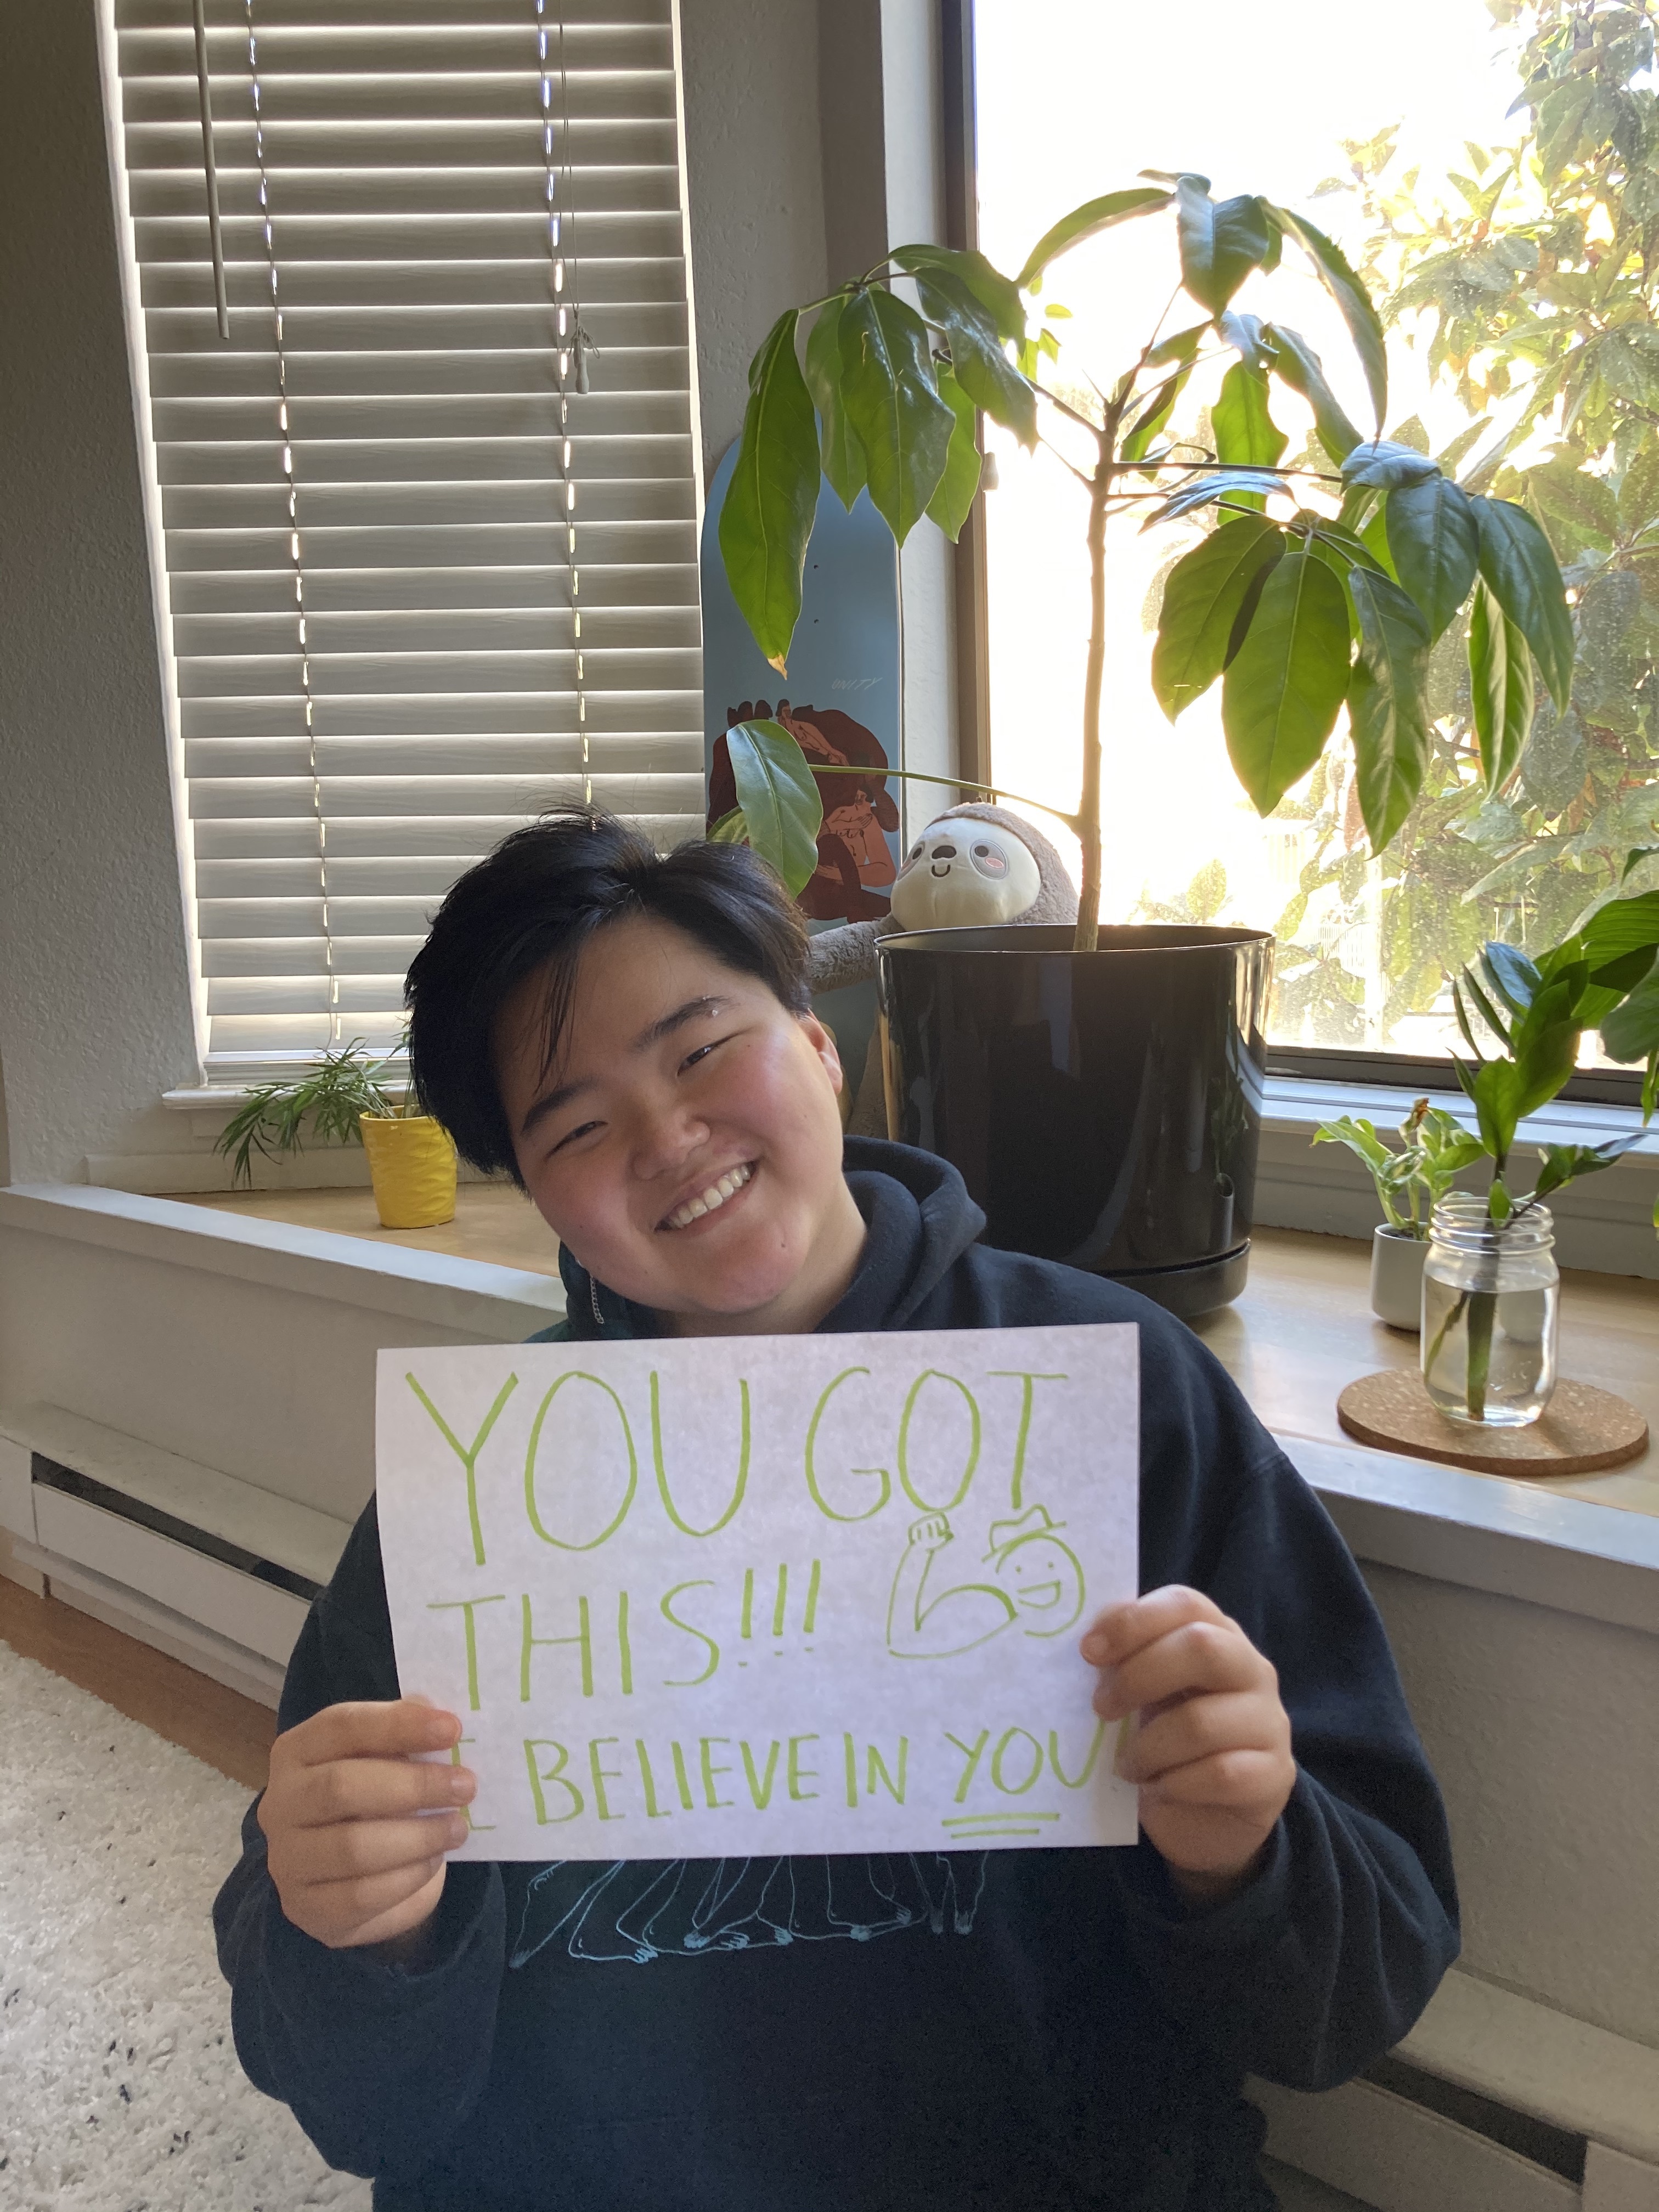 UNITY
YOU GOT
THIS!!!
I BELIEVE IN YOU